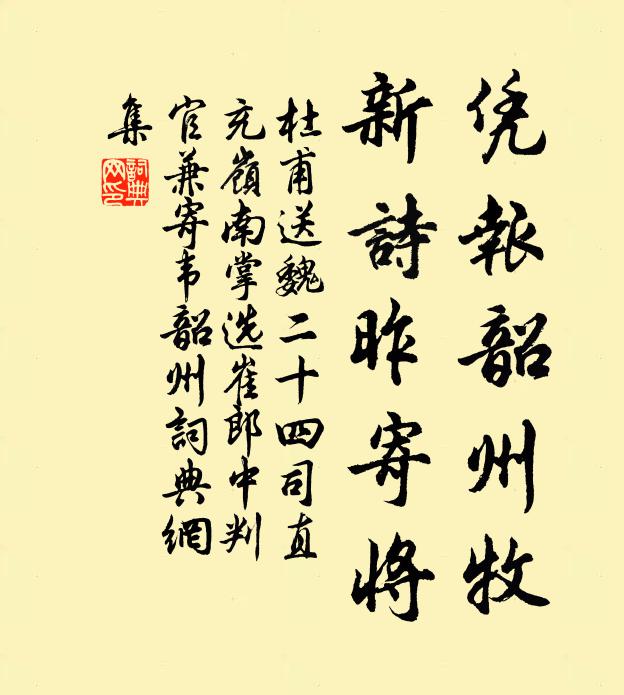 凭報韶州牧
新詩昨寄將
杜甫送魏二十四司直
充嶺南掌选崔郎中判
官兼寄韦韶州詞典網
集
詞典網印